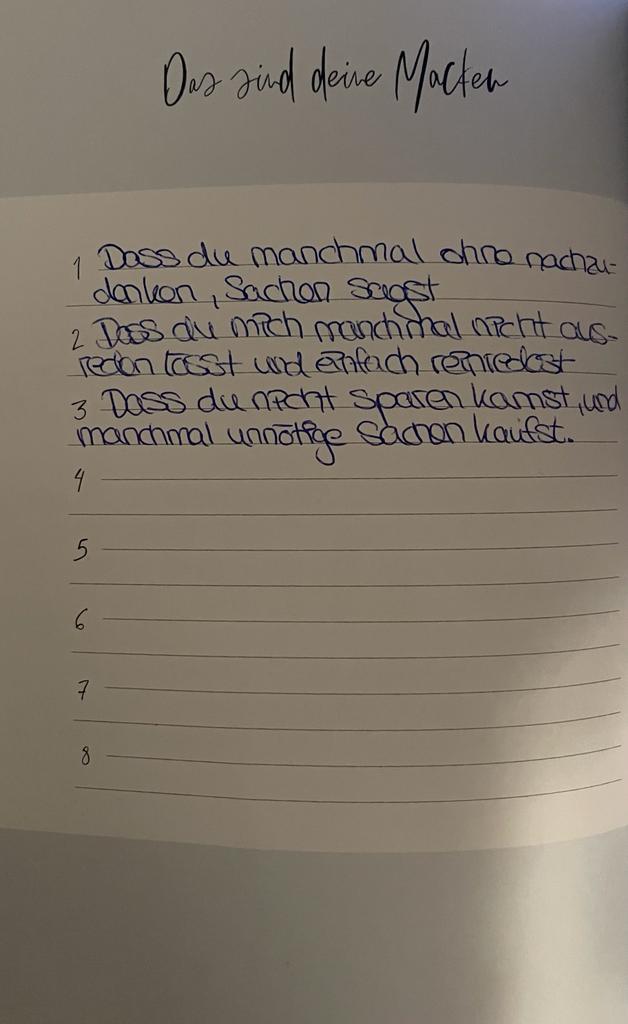 Das sind deine Macken
1 Dass du manchmal ohne nachzu-
denken, Sachen sagst
2 Dass du mich manchmal nicht aus-
reden lässt und einfach reinredest
3 Dass du nicht sparen kannst, und
manchmal unnötige Sachen kaufst.
4
5
6
7
8